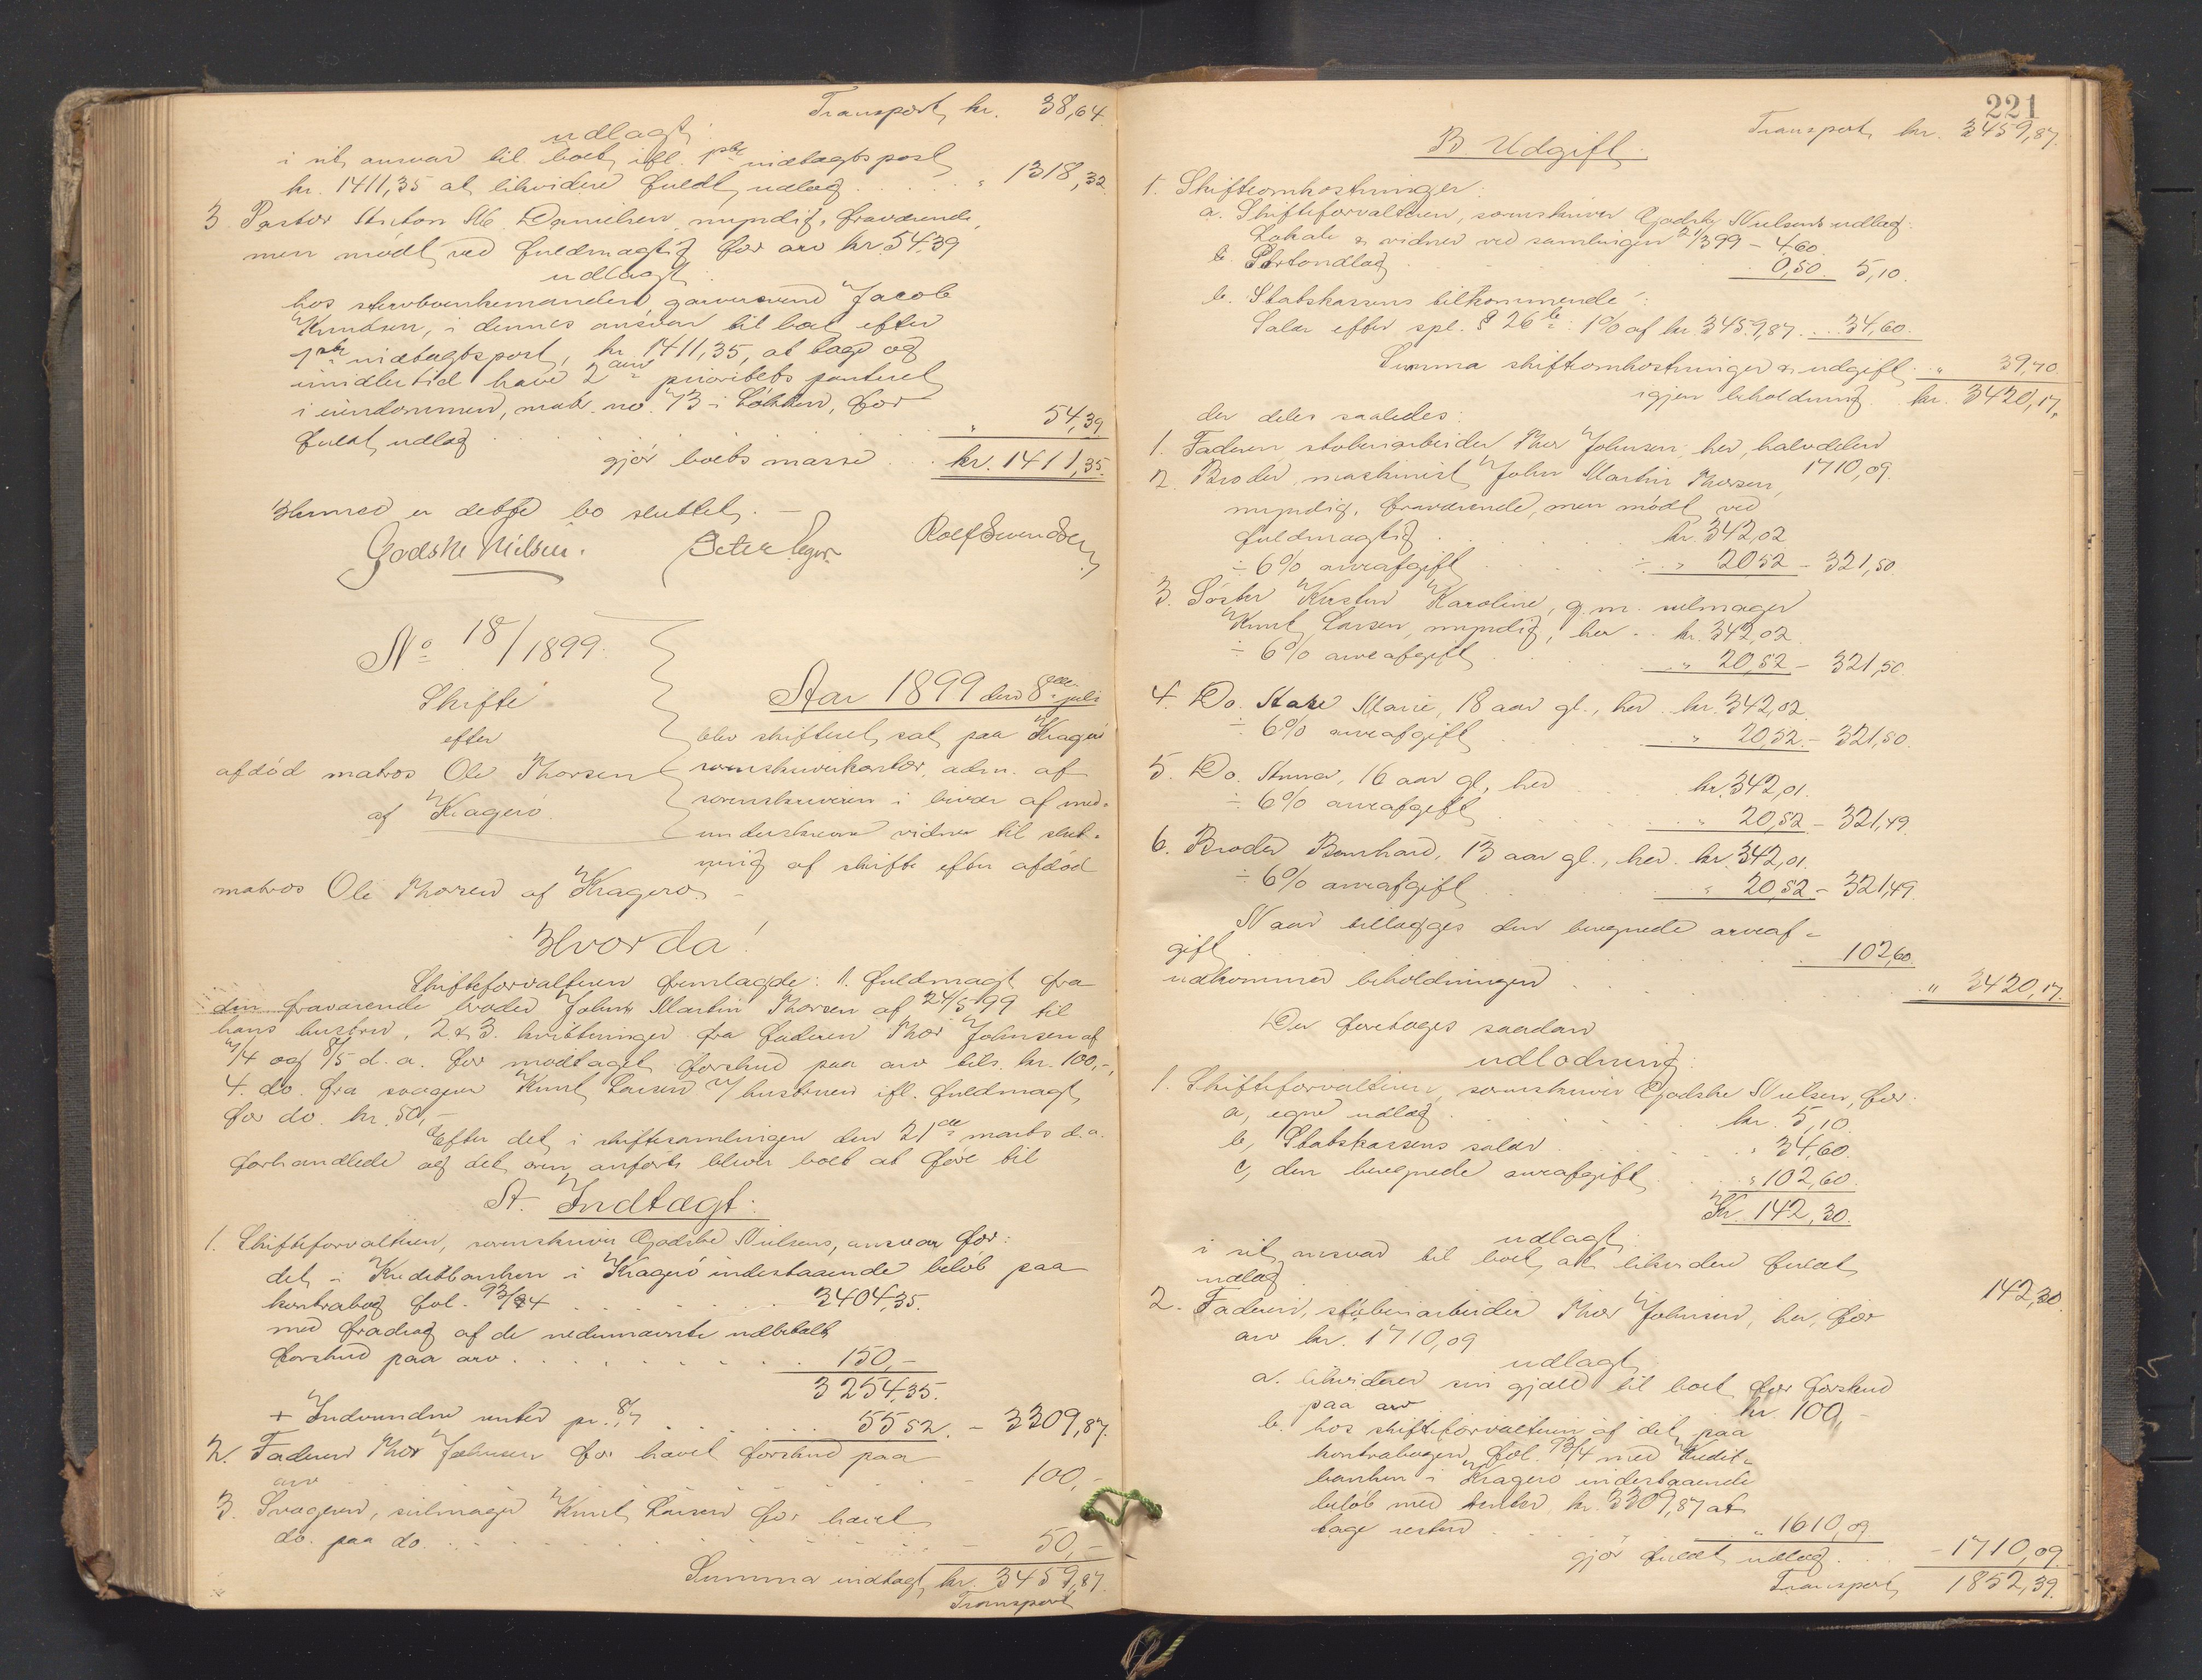 Transport, kr. 38,64.
udlagt:
i sit ansvar til boet, ifl. 1ste indtægtspost
kr. 1411,35 at likvidere fuldt udlæg . . . . . " 1318,32
3. Pastor Anton Ms. Danielsen, myndig, fraværende,
men mødt ved fuldmægtig for arv kr. 54,39
udlagt:
hos sterboenkemanden garver Jacob
Knudsen, i dennes ansvar til boet efter
1ste indtægtspost, kr. 1411,35, at tage og
imidlertid have 2den prioritets panteret
i eiendommen, matr. no. 73 i Løkken, for
fuldt udlæg . . . " 54,39
gjør boets masse . . kr. 1411,35.
Hermed er dette bo sluttet. –
Godske Nielsen. Peter Roelf Svendsen
No 18/1899.
Skifte
efter
afdød matros Ole Thorsen
af Kragerø.
Aar 1899 den 8de juli
blev skifteret sat paa Kragerø
sorenskriverkontor, adm. af
sorenskriveren i overvær af med-
underskrevne vidner til slut-
ning af skifte efter afdød
matros Ole Thorsen af Kragerø. –
Hvorda!
Skifteforvalteren fremlagde: 1. fuldmagt fra
den fraværende broder John Martin Thorsen af 24/5 99 til
hans hustru, 2 & 3. kvitteringer fra faderen Thor Johnsen af
4/4 og 8/5 d. a. for modtaget forskud paa arv tils. kr. 100,-,
4. do. fra svogeren Knut Larsen m/ hustruen ifl. fuldmagt,
for do. kr. 50,-
Efter det i skiftesamlingen den 21de marts d. a.
forhandlede og det ovenanførte bliver boet at føre til
A. Indtægt:
1. Skifteforvalteren, sorenskriver Godske Nielsens, ansvar for:
det i Kreditbanken i Kragerø indestaaende beløb paa
kontrabog fol. 93/94 . . . . . 3404,35.
med fradrag af de nedennævnte udbetalte
forskud paa arv . . . . . . . . 150,-
3254,35.
+ Indvundne renter pr. 8/7 . . . 55,52. – 3309,87.
2. Faderen Thor Johnsen for havet forskud paa
arv . . . . . . – 100,-
3. Svogeren, seilmager Knut Larsen for havet
do. paa do. . . . . . . – 50,-
Summa indtægt, kr. 3459,87.
Transport
221
Transport, kr. 3459,87.
B Udgift.
1. Skifteomkostninger:
a. Skifteforvalteren, sorenskriver Godske Nielsens udlæg:
Lokale & vidner ved samlingen 21/3 99 – 4,60
Portoudlæg . . . 0,50. 5,10.
b. Statskassens tilkommende:
Salær efter spl. § 26 b: 1% af kr. 3459,87. . . 34,60.
Summa skifteomkostninger & udgift . . " 39,70.
igjen beholdning kr. 3420,17.
der deles saaledes:
1. Faderen, støberiarbeider Thor Johnsen, her, halvdelen
1710,09.
2. Broder, maskinist John Martin Thorsen,
myndig, fraværende, men mødt ved
fuldmægtig . . . kr. 342,02
÷ 6% arveafgift . . . ÷ " 20,52 – 321,50.
3. Søster Kirsten Karoline, g. m. seilmager
Knut Larsen, myndig, her . . kr. 342,02.
÷ 6% arveafgift . . . " 20,52 – 321,50
4. Do. Aase Marie, 18 aar gl., her . kr. 342,02.
÷ 6% arveafgift . . . " 20,52. – 321,50.
5. Do. Anna, 16 aar gl., her . . . kr. 342,01.
÷ 6% arveafgift . . . " 20,52 – 321,49.
6. Broder Bernhard, 13 aar gl., her. kr. 342,01.
÷ 6% arveafgift . . . " 20,52 – 321,49.
Naar tillægges den beregnede arveaf-
gift . . . 102,60.
udkommer beholdningen . . . " 3420,17.
Der foretages saadan
udlodning:
1. Skifteforvalteren, sorenskriver Godske Nielsen, for:
a, egne udlæg . . . kr. 5,10.
b, Statskassens salær . . . " 34,60.
c, den beregnede arveafgift . . . " 102,60.
Kr. 142,30.
udlagt:
i sit ansvar til boet, at likvidere fuldt
udlæg . . . 142,30.
2. Faderen, støberiarbeider Thor Johnsen, her, for
arv kr. 1710,09
udlagt:
a. likviderer sin gjæld til boet for forskud
paa arv . . . kr. 100,-
b. hos skifteforvalteren af det paa
kontrabogen fol. 93/4 med Kredit-
banken i Kragerø indestaaende
beløb med renter, kr. 3309,87 at
tage resten . . . " 1610,09
gjør fuldt udlæg . . – 1710,09.
Transport, 1852,39.